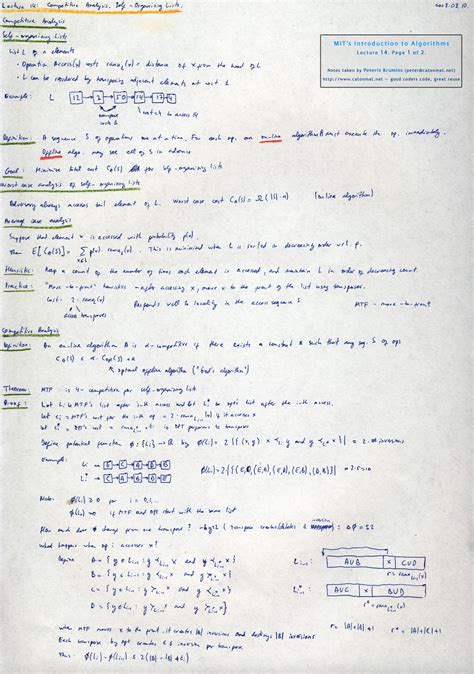 Lecture 14: Competitive Analysis, Self-Organizing Lists.
MIT's Introduction to Algorithms
Lecture 14. Page 1 of 2.
Notes taken by Peteris Krumins (peter@catonmat.net)
http://www.catonmat.net -- good coders code, great reuse
Competitive Analysis
Self-organizing lists
List L of n elements
• Operation Access(x) costs rank_L(x) = distance of x from the head of L
• L can be reordered by transposing adjacent elements at cost 1
Example: L → 12 → 3 → 50 → 14 → 17 → 4
transpose cost 1
Definition: A sequence S of operations one at a time. For each op. an on-line algorithm must execute the op. immediately.
Offline algo. may see all of S in advance
Goal: Minimize total cost C_A(S) for self-organizing lists
Worst case analysis of self-organizing lists
Adversary always accesses tail element of L. Worst case cost C_A(S) = Ω(|S|·n) (online algorithm)
Average case analysis
Suppose that element x is accessed with probability p(x).
Then E[C_A(S)] = Σ p(x)·rank_L(x). This is minimized when L is sorted in decreasing order w.r.t. p.
Heuristic: Keep a count of the number of times each element is accessed, and maintain L in order of decreasing count.
Practice: "Move-to-front" heuristic - after accessing x, move x to the front of the list using transposes.
Cost: 2·rank_L(x) Responds well to locality in the access sequence S. MTF - move-to-front
access transposes
Competitive Analysis
Definition: An on-line algorithm A is α-competitive if there exists a constant k such that any seq. S of ops
C_A(S) ≤ α·C_OPT(S) + k
optimal offline algorithm ("God's algorithm")
Theorem: MTF is 4-competitive for self-organizing lists
Proof: Let L_i be MTF's list after ith access and let L_i* be opt's list after the ith access.
Let c_i = MTF's cost for the ith op = 2·rank_{L_{i-1}}(x) if it accesses x
Define potential function φ: {L_i} → R by φ(L_i) = 2·|{(x,y): x ≺_{L_i} y and y ≺_{L_i*} x}| = 2·#inversions
Example:
L_i → E → C → A → D → B
L_i* → C → A → B → D → E
φ(L_i) = 2·|{(E,C),(E,A),(E,D),(E,B),(D,B)}| = 2·5=10
Note: φ(L_i) ≥ 0 for i = 0,1,...
φ(L_0) = 0 if MTF and OPT start with the same list
How much does φ change from one transpose?
What happens when op i accesses x?
Define A = {y ∈ L_{i-1}: y ≺_{L_{i-1}} x and y ≺_{L*_{i-1}} x}
L_{i-1}: A∪B x C∪D
L*_{i-1}: A∪C x B∪D
r = |A|+|B|+1 r* = |A|+|C|+1
when MTF moves x to the front, it creates |A| inversions and destroys |B| inversions
Each transpose by opt creates ≤ 1 inversion per transpose